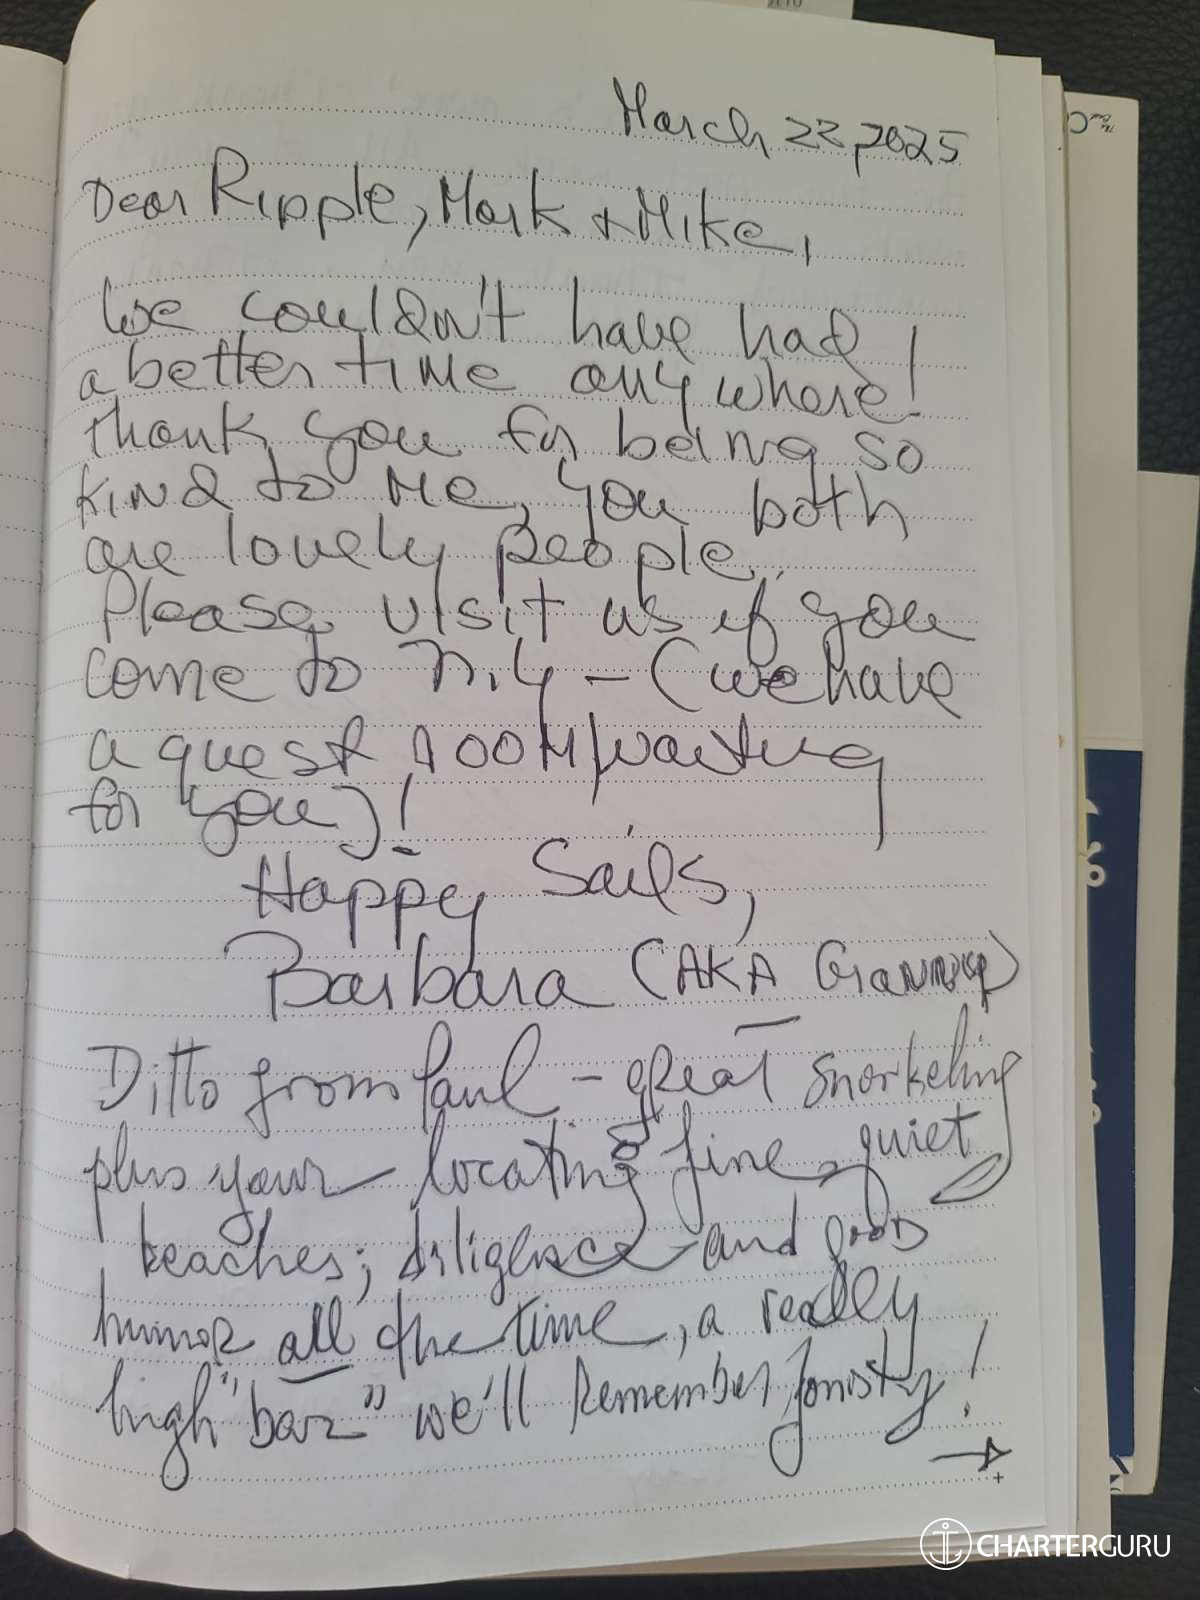 March 22, 2025
Dear Ripple, Mark & Mike,
We couldn't have had
a better time anywhere!
thank you for being so
kind to me, you both
are lovely people.
Please visit us if you
come to N.Y - (we have
a guest room waiting
for you)!
Happy Sails,
Barbara (AKA Granny)
Ditto from Paul - great snorkeling
plus your locating of fine, quiet
beaches; diligence and good
humor all the time, a really
high "bar" we'll remember
CHARTERGURU